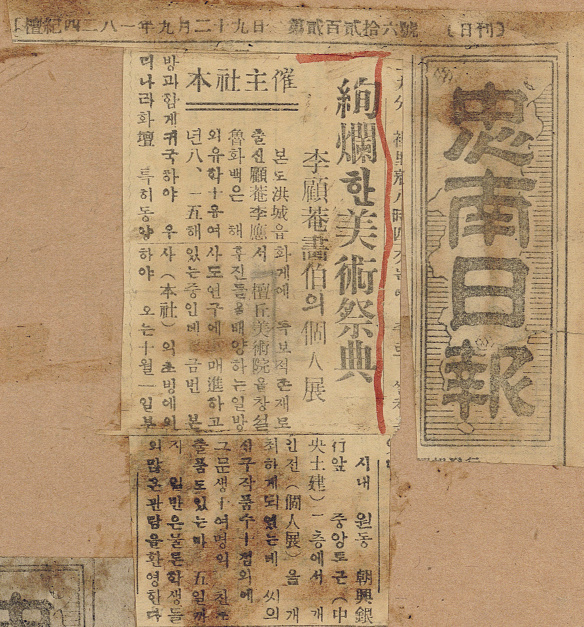 [檀紀四二八一年九月二十九日 第貳百貳拾六號 (日刊)]
忠南日報
絢爛한美術祭典
李顧菴畵伯의個人展
本社主催
본도洪城읍
출신顧菴李應
魯화백은 해
외유학十유여
년八、一五해
방과함게귀국하야 우
리나라화壇 특히동양
화게에 독보적존재로
서 檀丘美術院을창설
후진들을배양하는일방
사도연구에 매進하고
있는중인데 금번 본
사(本社)의초빙에의
하야 오는十月一일부
시내 원동 朝興銀
行앞 중앙토근(中
央土建)一층에서 개
인전(個人展)을 개
최하게되였는데 씨의
신구작품수十점외에
그문생十여명의 찬조
출품도있는바 五일까
지 일반은물론학생들
의많은관람을환영한다